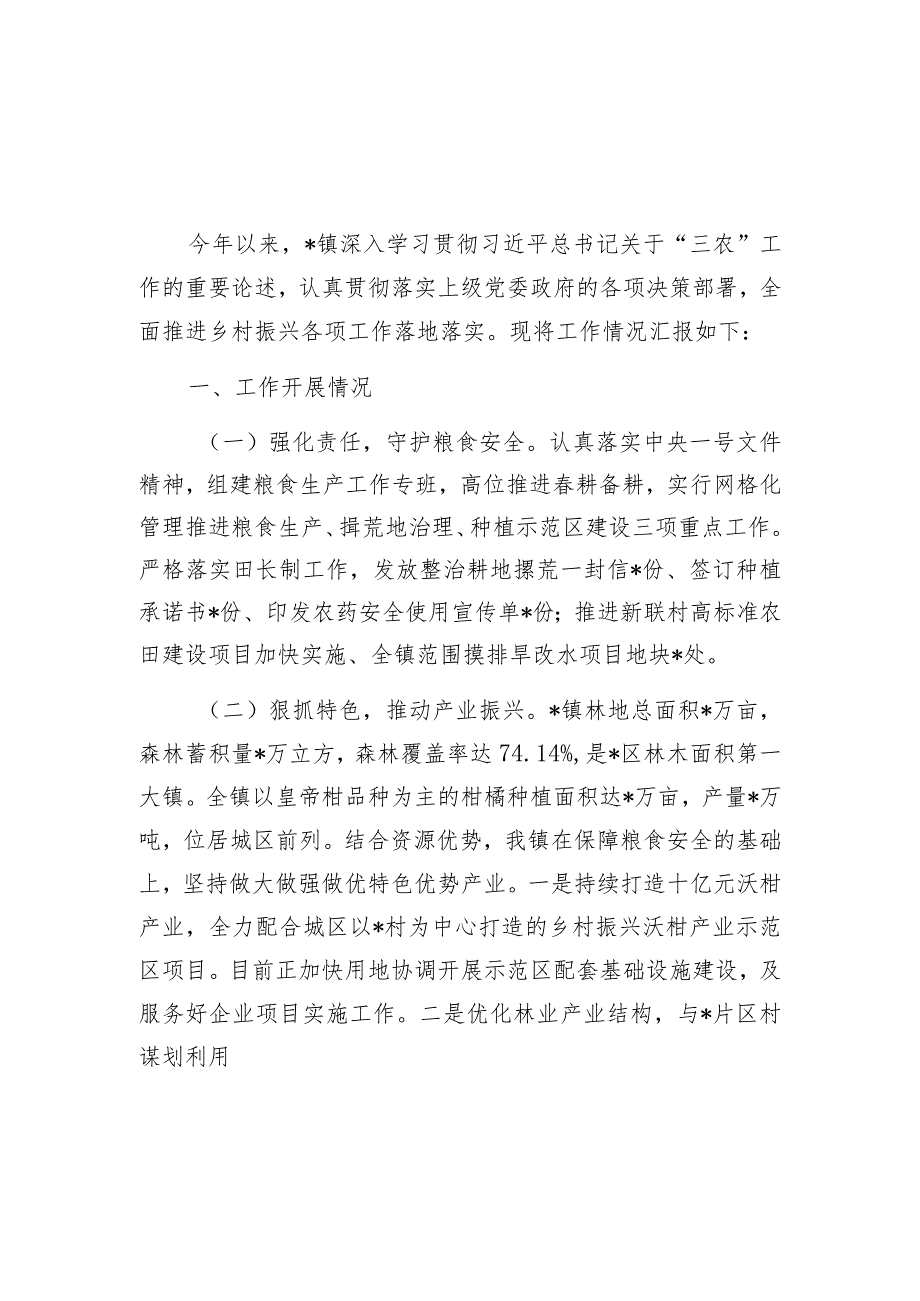 今年以来，*镇深入学习贯彻习近平总书记关于“三农”工
作的重要论述，认真贯彻落实上级党委政府的各项决策部署，全
面推进乡村振兴各项工作落地落实。现将工作情况汇报如下：
一、工作开展情况
（一）强化责任，守护粮食安全。认真落实中央一号文件
精神，组建粮食生产工作专班，高位推进春耕备耕，实行网格化
管理推进粮食生产、揖荒地治理、种植示范区建设三项重点工作。
严格落实田长制工作，发放整治耕地摞荒一封信*份、签订种植
承诺书*份、印发农药安全使用宣传单*份；推进新联村高标准农
田建设项目加快实施、全镇范围摸排旱改水项目地块*处。
（二）狠抓特色，推动产业振兴。*镇林地总面积*万亩，
森林蓄积量*万立方，森林覆盖率达 74.14%,是*区林木面积第一
大镇。全镇以皇帝柑品种为主的柑橘种植面积达*万亩，产量*万
吨，位居城区前列。结合资源优势，我镇在保障粮食安全的基础
上，坚持做大做强做优特色优势产业。一是持续打造十亿元沃柑
产业，全力配合城区以*村为中心打造的乡村振兴沃柑产业示范
区项目。目前正加快用地协调开展示范区配套基础设施建设，及
服务好企业项目实施工作。二是优化林业产业结构，与*片区村
谋划利用